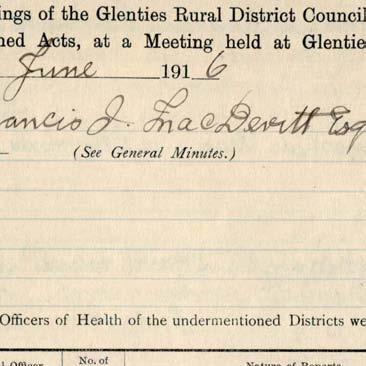 ings of the Glenties Rural District Council
ned Acts, at a Meeting held at Glentie
June 1916
ancis J. MacDevitt Esq
(See General Minutes.)
Officers of Health of the undermentioned Districts we
l Officer No. of Nature of Reports